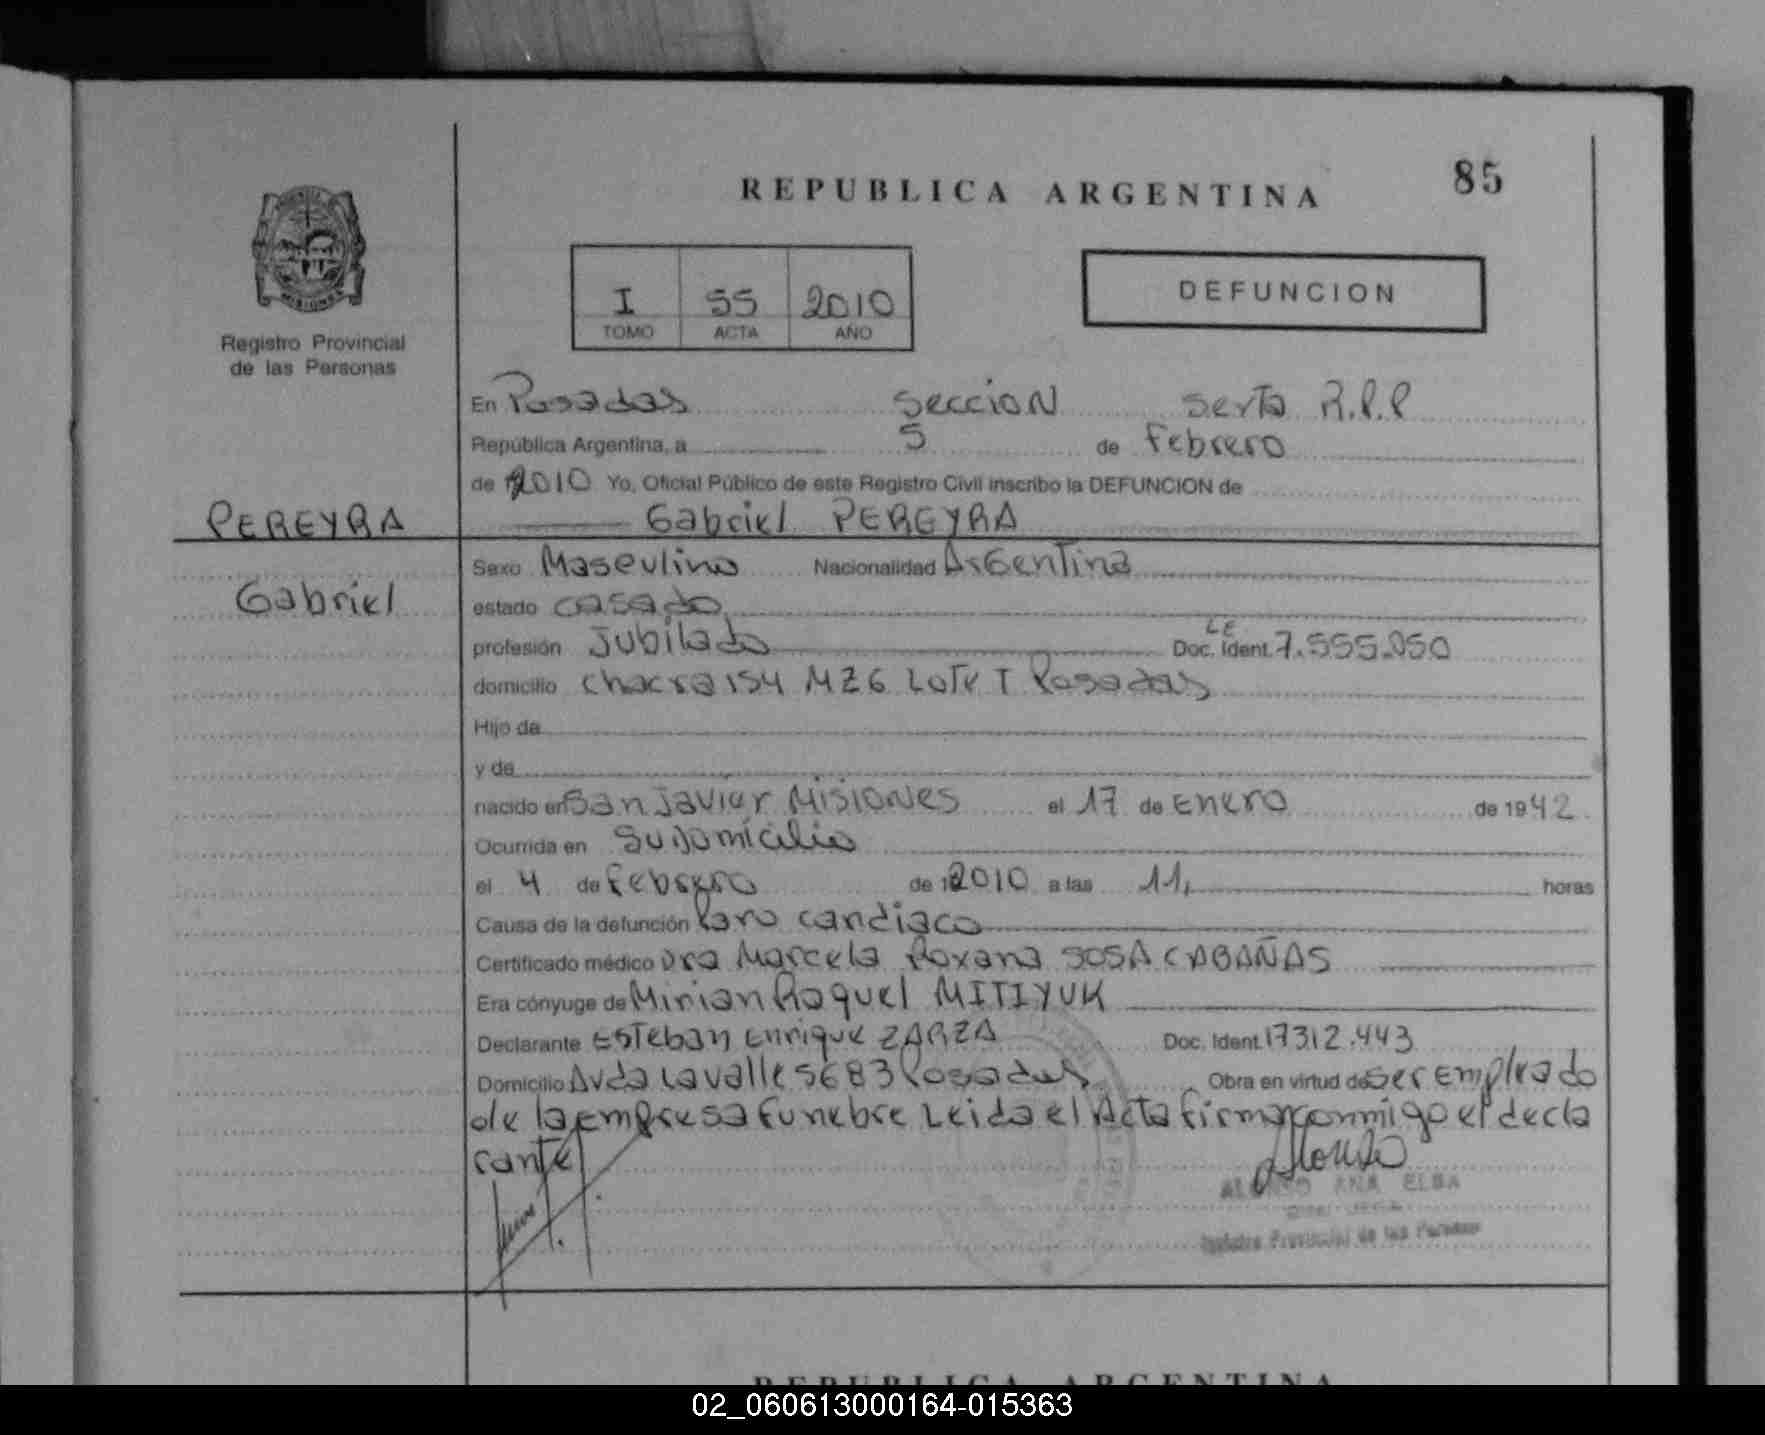 85
REPUBLICA ARGENTINA
MISIONES
Registro Provincial
de las Personas
I 55 2010
TOMO ACTA AÑO
DEFUNCION
En Posadas sección sexta R.P.P
República Argentina, a 5 de Febrero
de 2010 Yo, Oficial Público de este Registro Civil inscribo la DEFUNCION de
PEREYRA
Gabriel PEREYRA
Gabriel
Sexo Masculino Nacionalidad Argentina
estado casado
profesión Jubilado Doc. Ident. LE 7.555.050
domicilio chacra 154 MZ6 Lote T Posadas
Hijo de
y de
nacido en San Javier Misiones el 17 de Enero de 1942
Ocurrida en su domicilio
el 4 de Febrero de 2010 a las 11, horas
Causa de la defunción Paro candiaco
Certificado médico Dra Marcela Roxana SOSA CABAÑAS
Era cónyuge de Mirian Raquel MITIYUK
Declarante Esteban Enrique ZARZA Doc. Ident. 17312.443
Domicilio Avda Lavalle 5683 Posadas Obra en virtud de ser empleado
de la empresa funebre Leida el Acta firma conmigo el decla
rante
ALONSO ANA ELBA
Registro Provincial de las Personas
REPUBLICA ARGENTINA
02_060613000164-015363